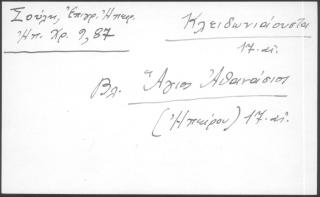 Σούλη, Ἐπιγρ. Ἠπείρ.
Ἠπ. Χρ. 9, 87
Κλειδωνιάουστα
17. αἰ.
Βλ. Ἅγιοι Ἀθανάσιοι
(Ἠπείρου) 17. αἰ.